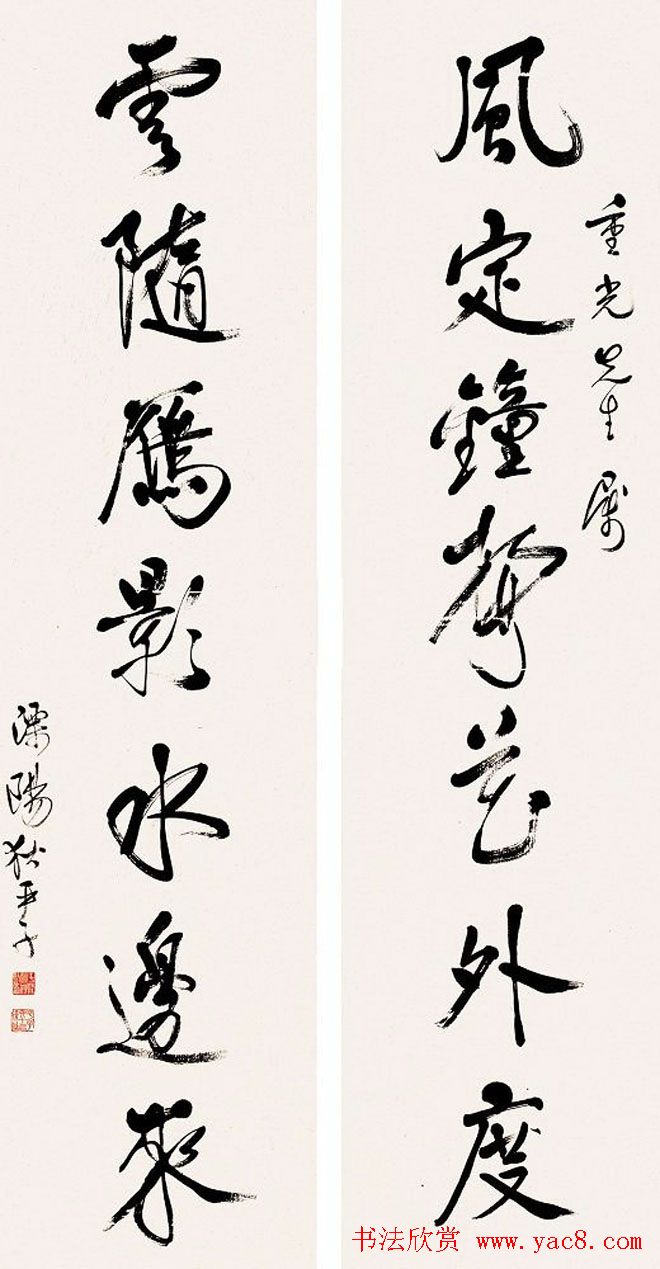 重光先生屬
風定鐘聲花外度
雲隨鴈影水邊來
溧陽狄平子
书法欣赏 www.yac8.com